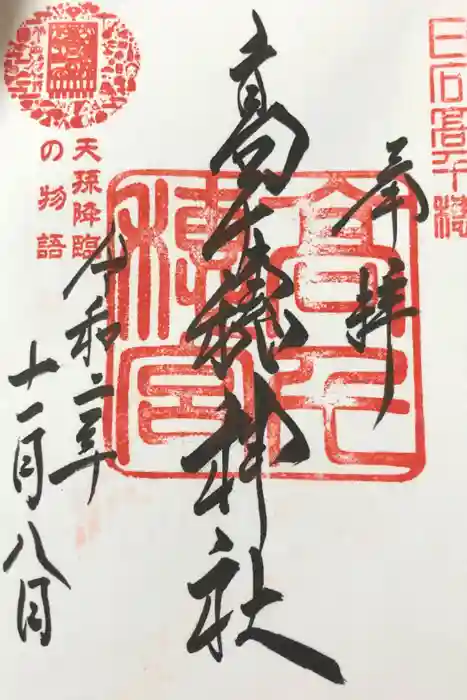 日向高千穂
奉拝
高千穂宮
高千穂神社
天孫降臨
の物語
令和二年
十一月八日